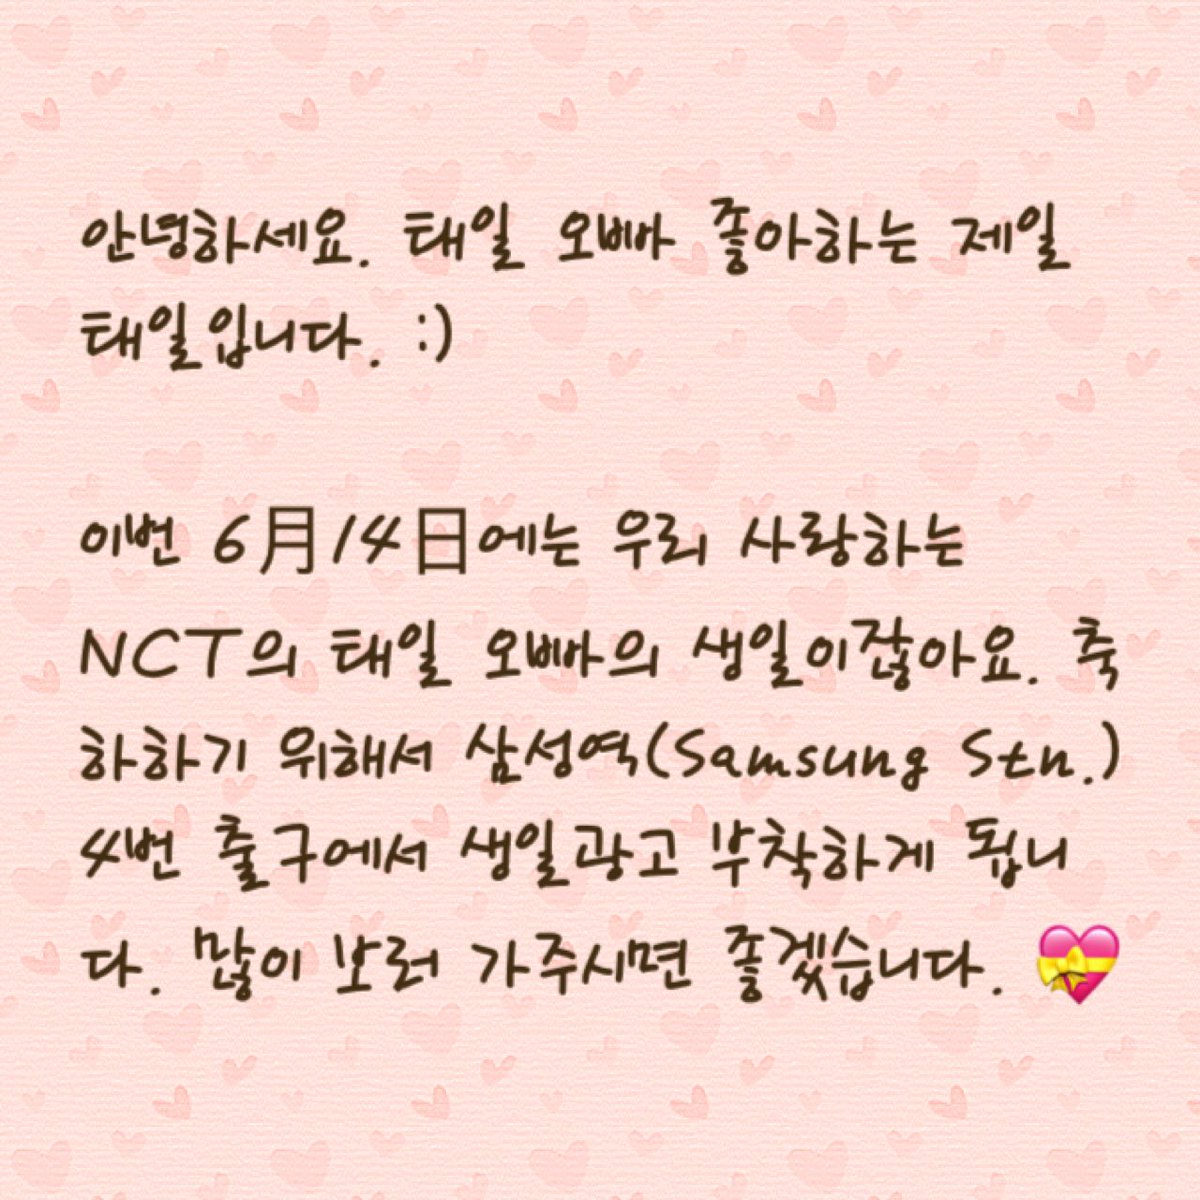 안녕하세요. 태일 오빠 좋아하는 제일
태일입니다. :)
이번 6月14日에는 우리 사랑하는
NCT의 태일 오빠의 생일이잖아요. 축
하하기 위해서 삼성역(Samsung Stn.)
4번 출구에서 생일광고 부착하게 됩니
다. 많이 보러 가주시면 좋겠습니다. 💝